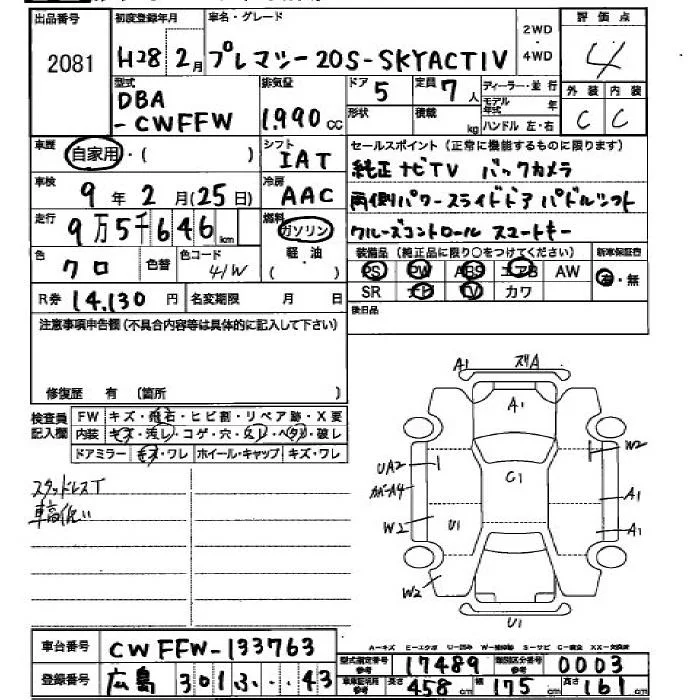 出品番号 初度登録年月 車名・グレード 2WD・4WD 評価点
2081 H28 2月 プレマシー 20S-SKYACTIV 4
型式 DBA-CWFFW 排気量 1,990cc ドア 5 定員 7人 ディーラー・並行 外装 内装
形状 積載 kg モデル年式 年 ハンドル 左・右 C C
車歴 自家用・( ) シフト IAT セールスポイント(正常に機能するものに限ります)
車検 9年2月(25日) 冷房 AAC 純正ナビTV バックカメラ
両側パワースライドドア パドルシフト
走行 9万5千646km 燃料 ガソリン 軽・油 ( ) クルーズコントロール スマートキー
色 クロ 色替 色コード 41W 装備品(純正品に限り○をつけてください) 新車保証書
PS PW ABS エアB AW 有・無
SR ナビ TV カワ
R券 14,130円 名変期限 月 日 後日品
注意事項申告欄(不具合内容等は具体的に記入して下さい)
修復歴 有 (箇所 )
検査員記入欄 FW キズ・飛石・ヒビ割・リペア跡・X要
内装 キズ・汚レ・コゲ・穴・スレ・ヘタリ・破レ
ドアミラー キズ・ワレ ホイール・キャップ キズ・ワレ
スタッドレスT
車高低い
A1 ズリA
A1
UA2 G1 W2
カバーA4 A1
W2 U1 A1
W2
U1
A=キズ E=エクボ U=凹み W=補修跡 S=サビ C=腐食 XX=交換済
車台番号 CWFFW-133763
型式指定番号 参考 17489 類別区分番号 参考 0003
登録番号 広島 301 ふ ・・43
車車証記載用 参考 長さ 458cm 幅 175cm 高さ 161cm